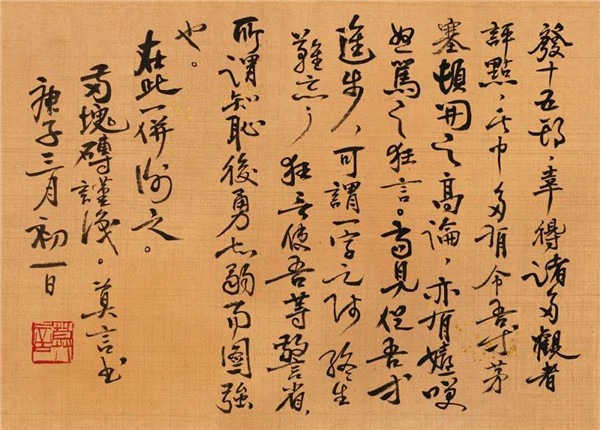 發十五期，幸得諸多觀者
評點，其中多有令吾等茅
塞頓開之高論，亦有嬉笑
怒罵之狂言。高見促吾等
進步，可謂一字之師終生
難忘，狂言使吾等警省，
所謂知恥後勇知弱而圖強
也。
在此一併謝之。
兩塊磚謹識。莫言書
庚子三月初一日